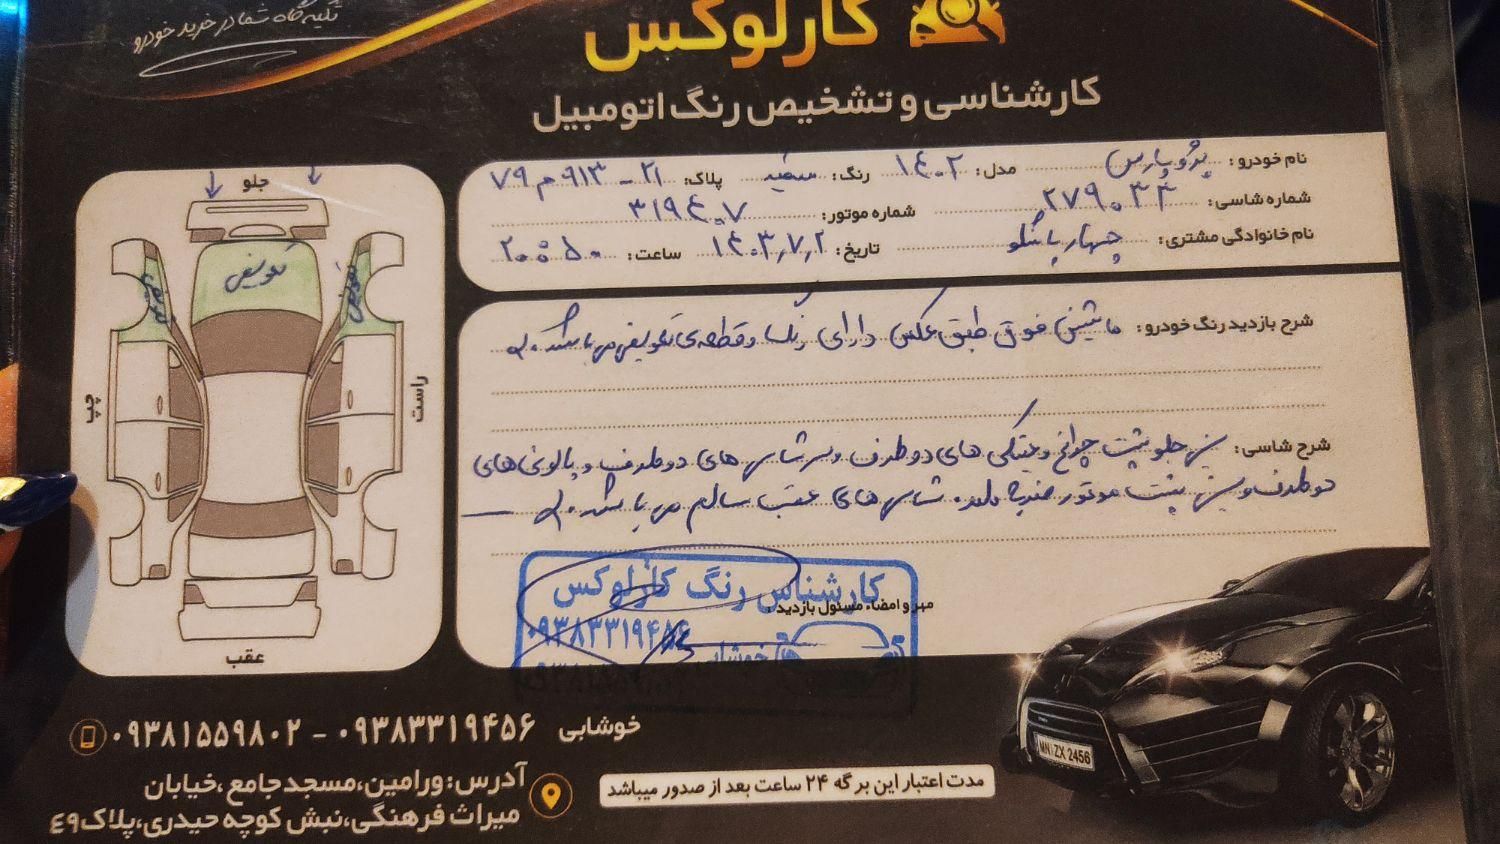 تکیه گاه شما در خرید خودرو
کارلوکس
کارشناسی و تشخیص رنگ اتومبیل
نام خودرو: پژو پارس مدل: ۱۴۰۲ رنگ: سفید پلاک: ۲۱ - ۹۱۳ م ۷۹
شماره شاسی: ۲۷۹۰۳۴ شماره موتور: ۳۱۹۴۰۷
نام خانوادگی مشتری: چهارباشلو تاریخ: ۱۴۰۳,۷,۲ ساعت: ۲۰:۵۰
شرح بازدید رنگ خودرو: ماشین فوق طبق عکس دارای رنگ و قطعه‌ی تعویض می باشد.
شرح شاسی: سینی جلو پشت چراغ و های دو طرف و سرشاسی های دو طرف و پالونی های
دو طرف و سینی پشت موتور ضربه دارد. شاسی های عقب سالم می باشد.
جلو
تعویض
تعویض
تعویض
چپ
راست
عقب
مهر و امضاء مسئول بازدید
کارشناس رنگ کارلوکس
۰۹۳۸۳۳۱۹۴۵۶
خوشابی
MN ZX 2456
خوشابی ۰۹۳۸۳۳۱۹۴۵۶ - ۰۹۳۸۱۵۵۹۸۰۲
مدت اعتبار این برگه ۲۴ ساعت بعد از صدور میباشد
آدرس: ورامین، مسجد جامع، خیابان
میراث فرهنگی، نبش کوچه حیدری، پلاک ۴۹